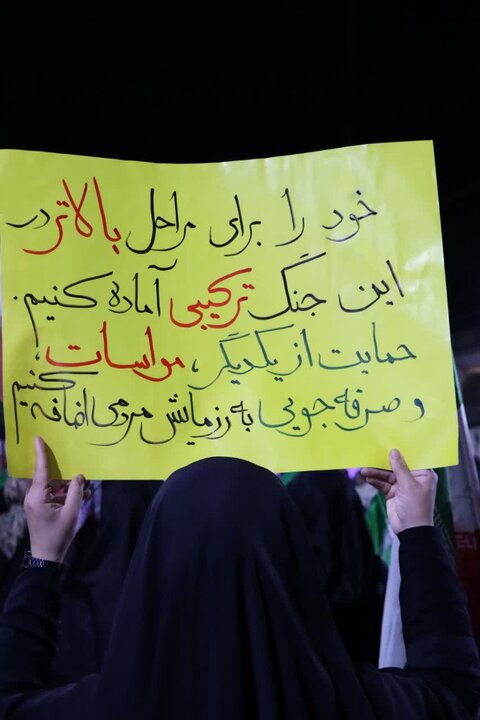 خود را برای مراحل بالاتر در
این جنگ ترکیبی آماده کنیم.
حمایت از یکدیگر، مواسات،
و صرفه جویی به رزمایش مردمی اضافه کنیم